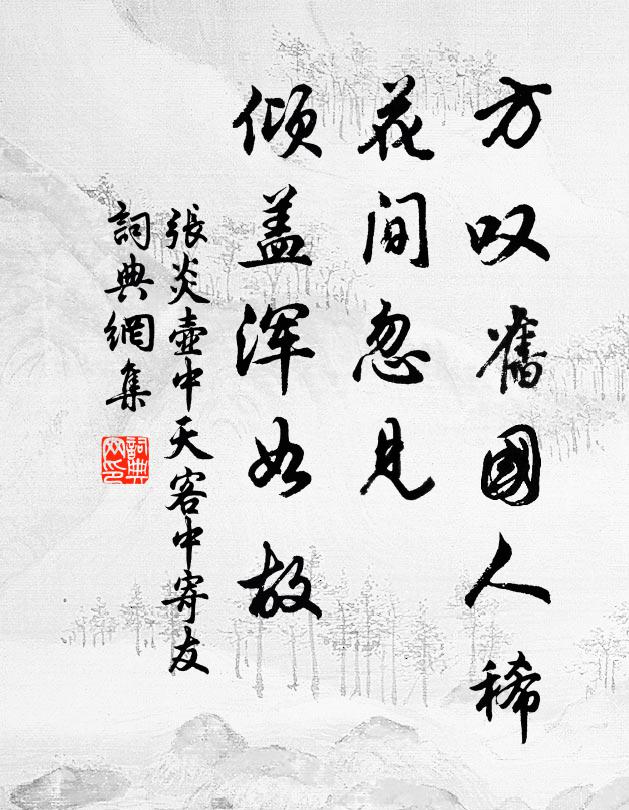 方叹舊國人稀
花间忽见
倾盖浑如故
張炎壺中天客中寄友
詞典網集
詞典網印